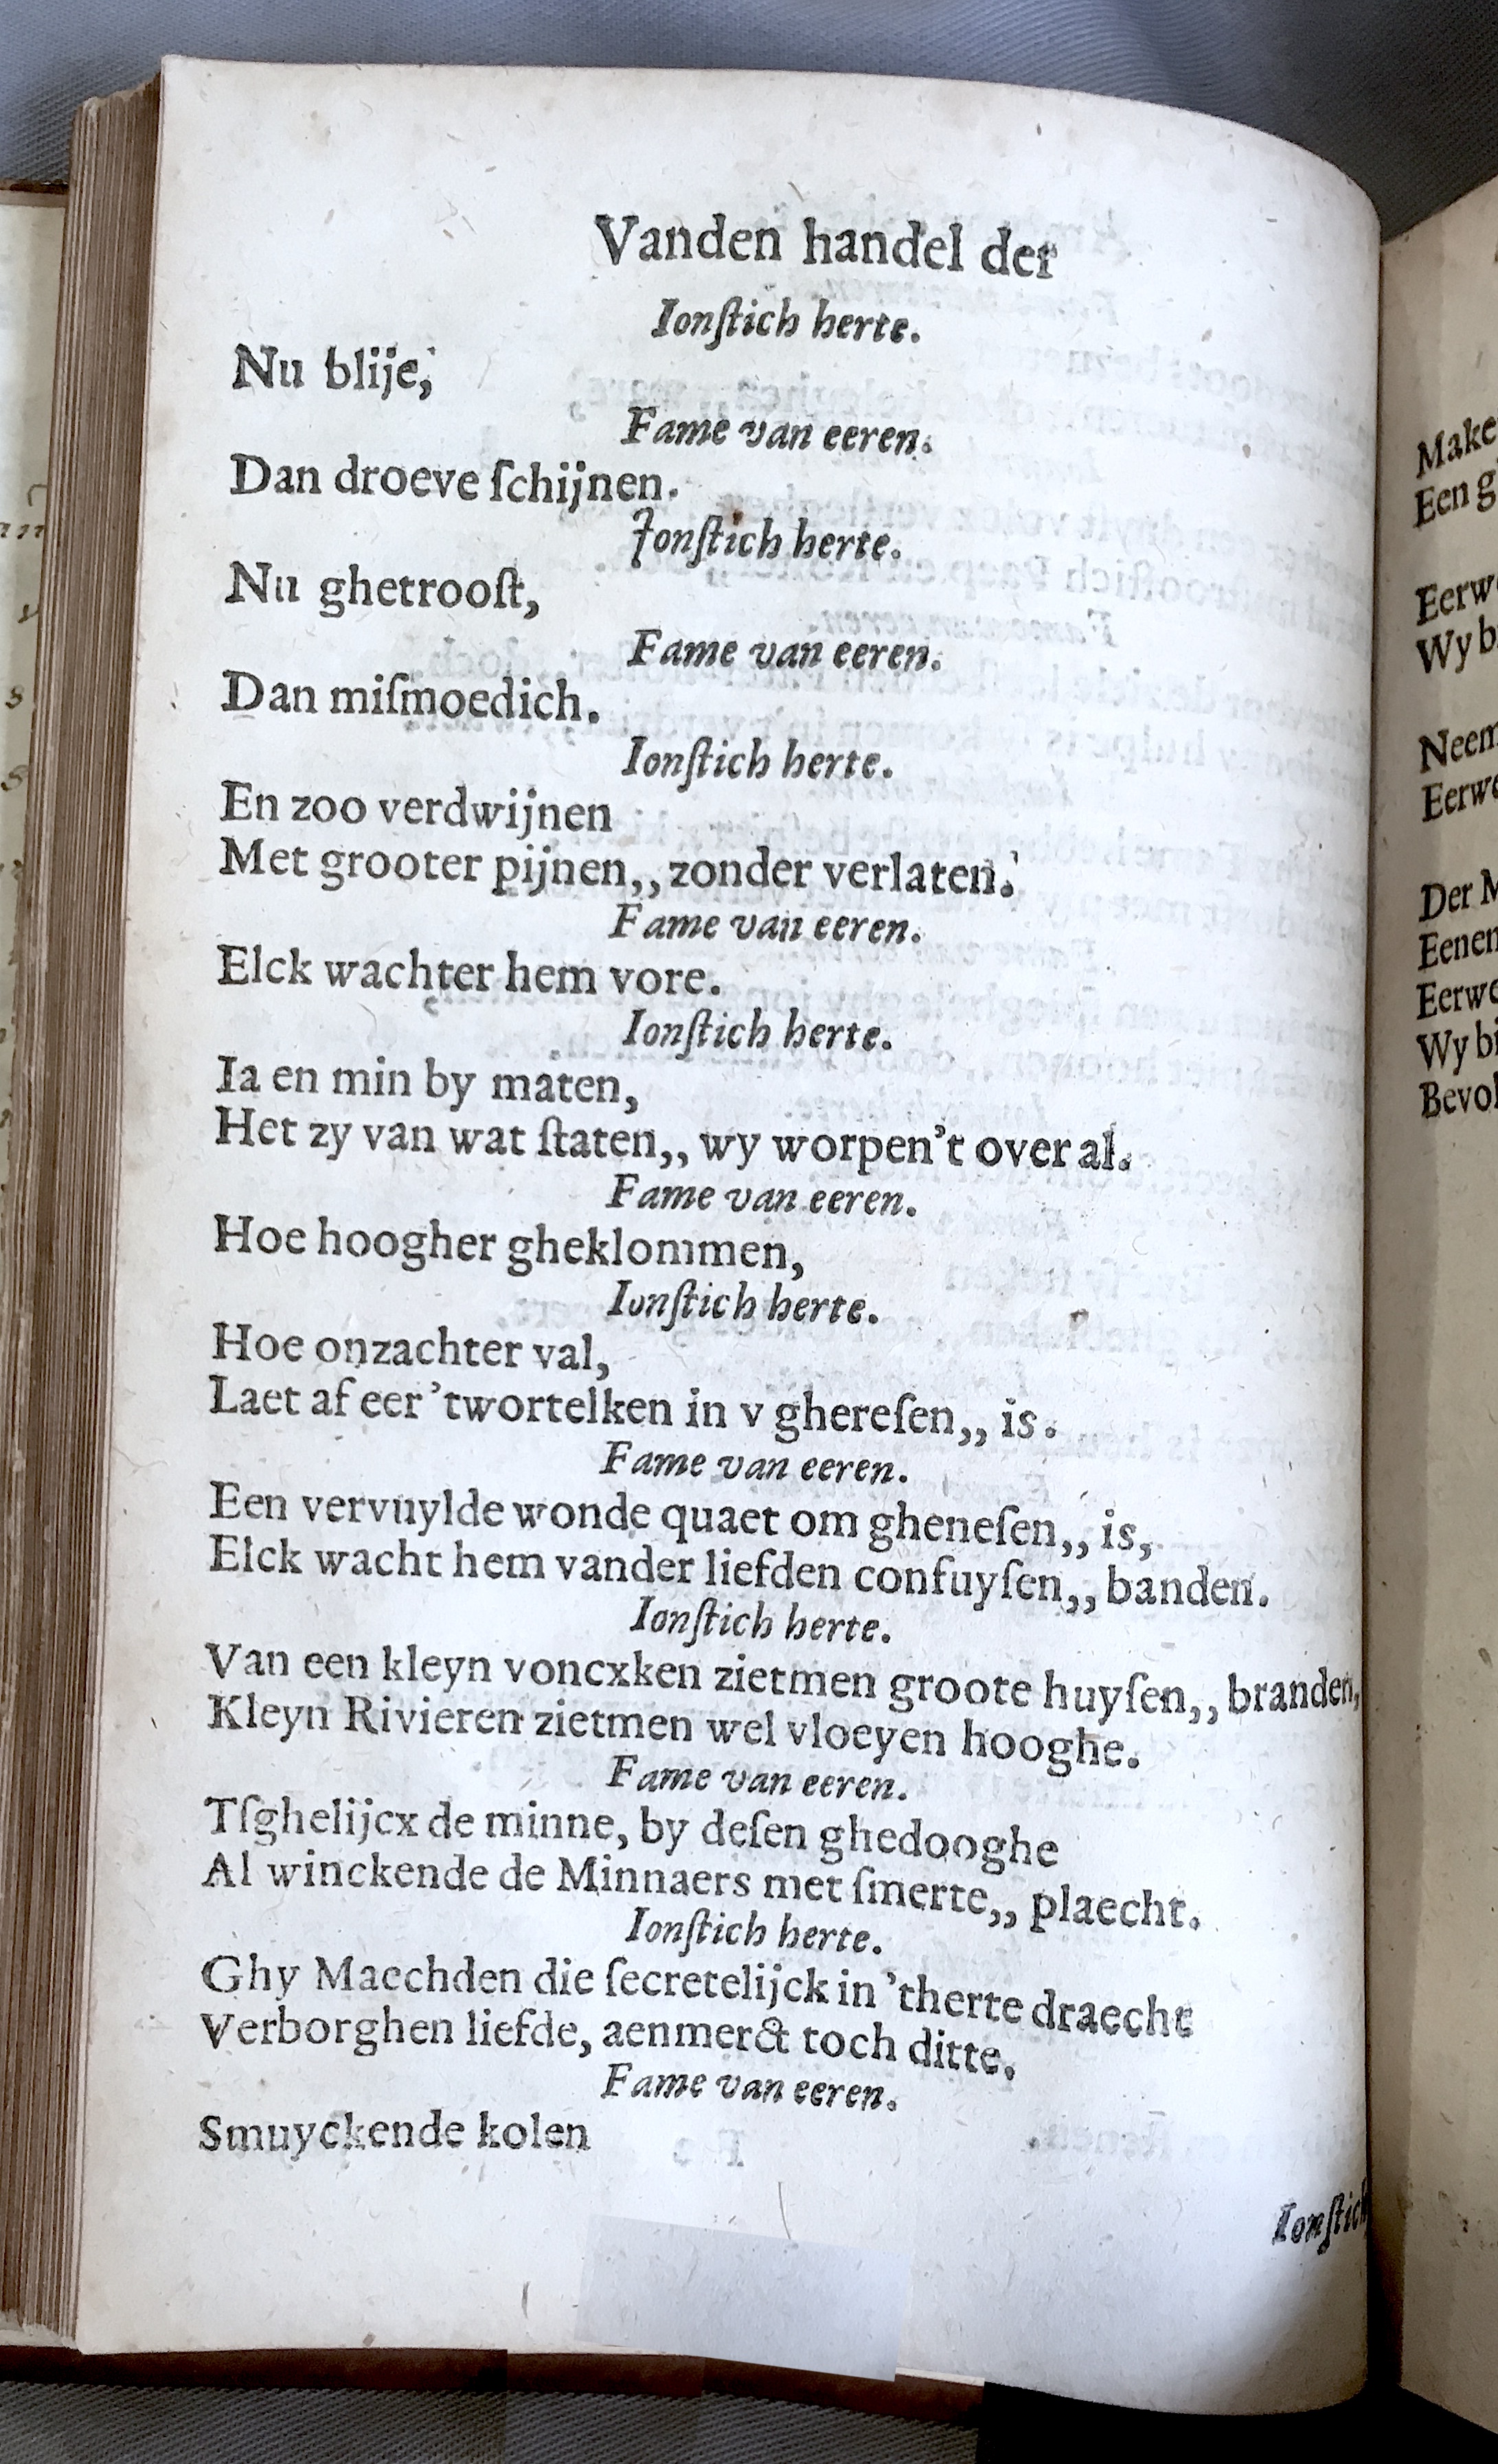 Vanden handel der
Ionſtich herte.
Nu blije,
Fame van eeren.
Dan droeve ſchijnen.
Jonſtich herte.
Nu ghetrooſt,
Fame van eeren.
Dan miſmoedich.
Ionſtich herte.
En zoo verdwijnen
Met grooter pijnen,, zonder verlaten.
Fame van eeren.
Elck wachter hem vore.
Ionſtich herte.
Ia en min by maten,
Het zy van wat ſtaten,, wy worpen't over al.
Fame van eeren.
Hoe hoogher gheklommen,
Ionſtich herte.
Hoe onzachter val,
Laet af eer 'twortelken in v ghereſen,, is.
Fame van eeren.
Een vervuylde wonde quaet om gheneſen,, is,
Elck wacht hem vander liefden confuyſen,, banden.
Ionſtich herte.
Van een kleyn voncxken zietmen groote huyſen,, branden,
Kleyn Rivieren zietmen wel vloeyen hooghe.
Fame van eeren.
Tſghelijcx de minne, by deſen ghedooghe
Al winckende de Minnaers met ſmerte,, plaecht.
Ionſtich herte.
Ghy Maechden die ſecretelijck in 'therte draecht
Verborghen liefde, aenmerct toch ditte.
Fame van eeren.
Smuyckende kolen
Ionſtich
Make
Een g
Eerw
Wy b
Neem
Eerwe
Der M
Eenen
Eerwe
Wy bi
Bevol